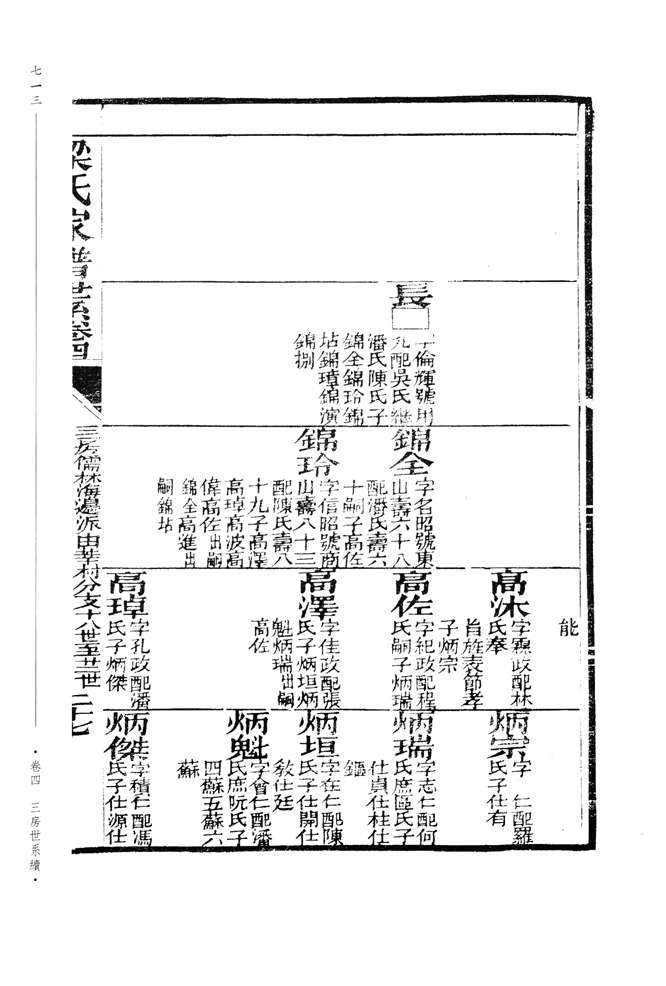 長□
字倫輝號用
九配吳氏繼
潘氏陳氏子
錦全錦玲錦
坫錦璋錦演
錦捌
錦全
字名昭號東
山壽六十八
配潘氏壽六
十嗣子高佐
錦玲
字信昭號商
山壽八十三
配陳氏壽八
十九子高澤
高琸高波高
偉高佐出嗣
錦全高進出
嗣錦坫
能
高沐
字霖政配林
氏奉
旨旌表節孝
子炳宗
高佐
字紀政配程
氏嗣子炳瑞
高澤
字佳政配張
氏子炳垣炳
魁炳瑞出嗣
高佐
高琸
字孔政配潘
氏子炳傑
炳宗
字 仁配羅
氏子仕有
炳瑞
字志仁配何
氏庶區氏子
仕貞仕桂仕
鏂
炳垣
字在仁配陳
氏子仕開仕
敎仕廷
炳魁
字會仁配潘
氏庶阮氏子
四蘇五蘇六
蘇
炳傑
字積仁配馮
氏子仕源仕
梁氏家譜世系卷四
三房儒林海邊派由莘村分支十八世至廿二世 二十七
七一三
·卷四 三房世系續·